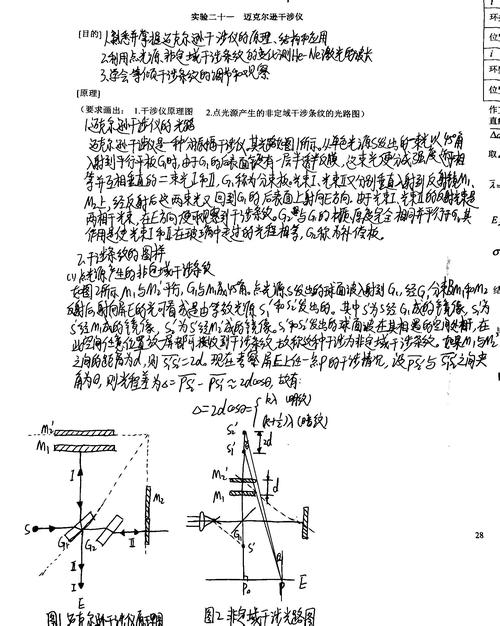 实验二十一 迈克尔逊干涉仪
[目的] 1.熟悉并掌握迈克尔逊干涉仪的原理、结构和应用
2.利用点光源非定域干涉条纹的变化测He-Ne激光的波长
3.学会等倾干涉条纹的调节和观察
[原理]
(要求画出: 1.干涉仪原理图 2.点光源产生的非定域干涉条纹的光路图)
1.迈克尔逊干涉仪的光路
迈克尔逊干涉仪是一种分振幅干涉仪,其光路图1所示。从单色光源S发出的一束光以45°角
入射到平行平板G₁时,由于G₁的后表面镀有一层半
等并互相垂直的二束光Ⅰ和Ⅱ,G₁称为分束板。光Ⅰ、光Ⅱ又分别垂直入射到反射镜M₁
M₂上,经反射后这两束又回到G₁的后表面上射向E方向,
两相干光,在E方向便可观察到干涉条纹。G₂与G₁的
作用是使光Ⅰ和Ⅱ在玻璃中走过的光程相等,G₂称为补偿板。
2.干涉条纹的图样
(1)点光源产生的非定域干涉条纹
在图2所示M₁与M₂'平行,G₁与M₁成45°角。点光源S发出的球面波入射到G₁,经G₁分束及M₁和M₂
反射向射向屏E的光可看成是由
是S经M₁成的镜像,S₂'为S'经M₂'成的镜像。S₁'和S₂'发出的球面波在其相遇的空间处处相干,在
此空间任意位置放一屏都可接收到干涉条纹,故称这种干涉为非定域干涉条纹。如果M₁与M₂'
之间的距离为d,则S₁'S₂'=2d。现在考察屏E上任一点P的干涉情况,设PS₂'与S₁'S₂'之间夹
角为θ,则光程差为Δ=PS₂'-PS₁'≈2dcosθ,故有:
Δ=2dcosθ={kλ 明纹
(k+½)λ (暗纹)
S₂'
M₂' S₁' 2d
M₁ M₂' d
Ⅰ M₁
M₂
S G₁ G₂ Ⅱ G₁
S'
Ⅱ θ
Ⅰ P₀ P E
E
图1 迈克尔逊干涉仪原理图 图2 非定域干涉光路图
28